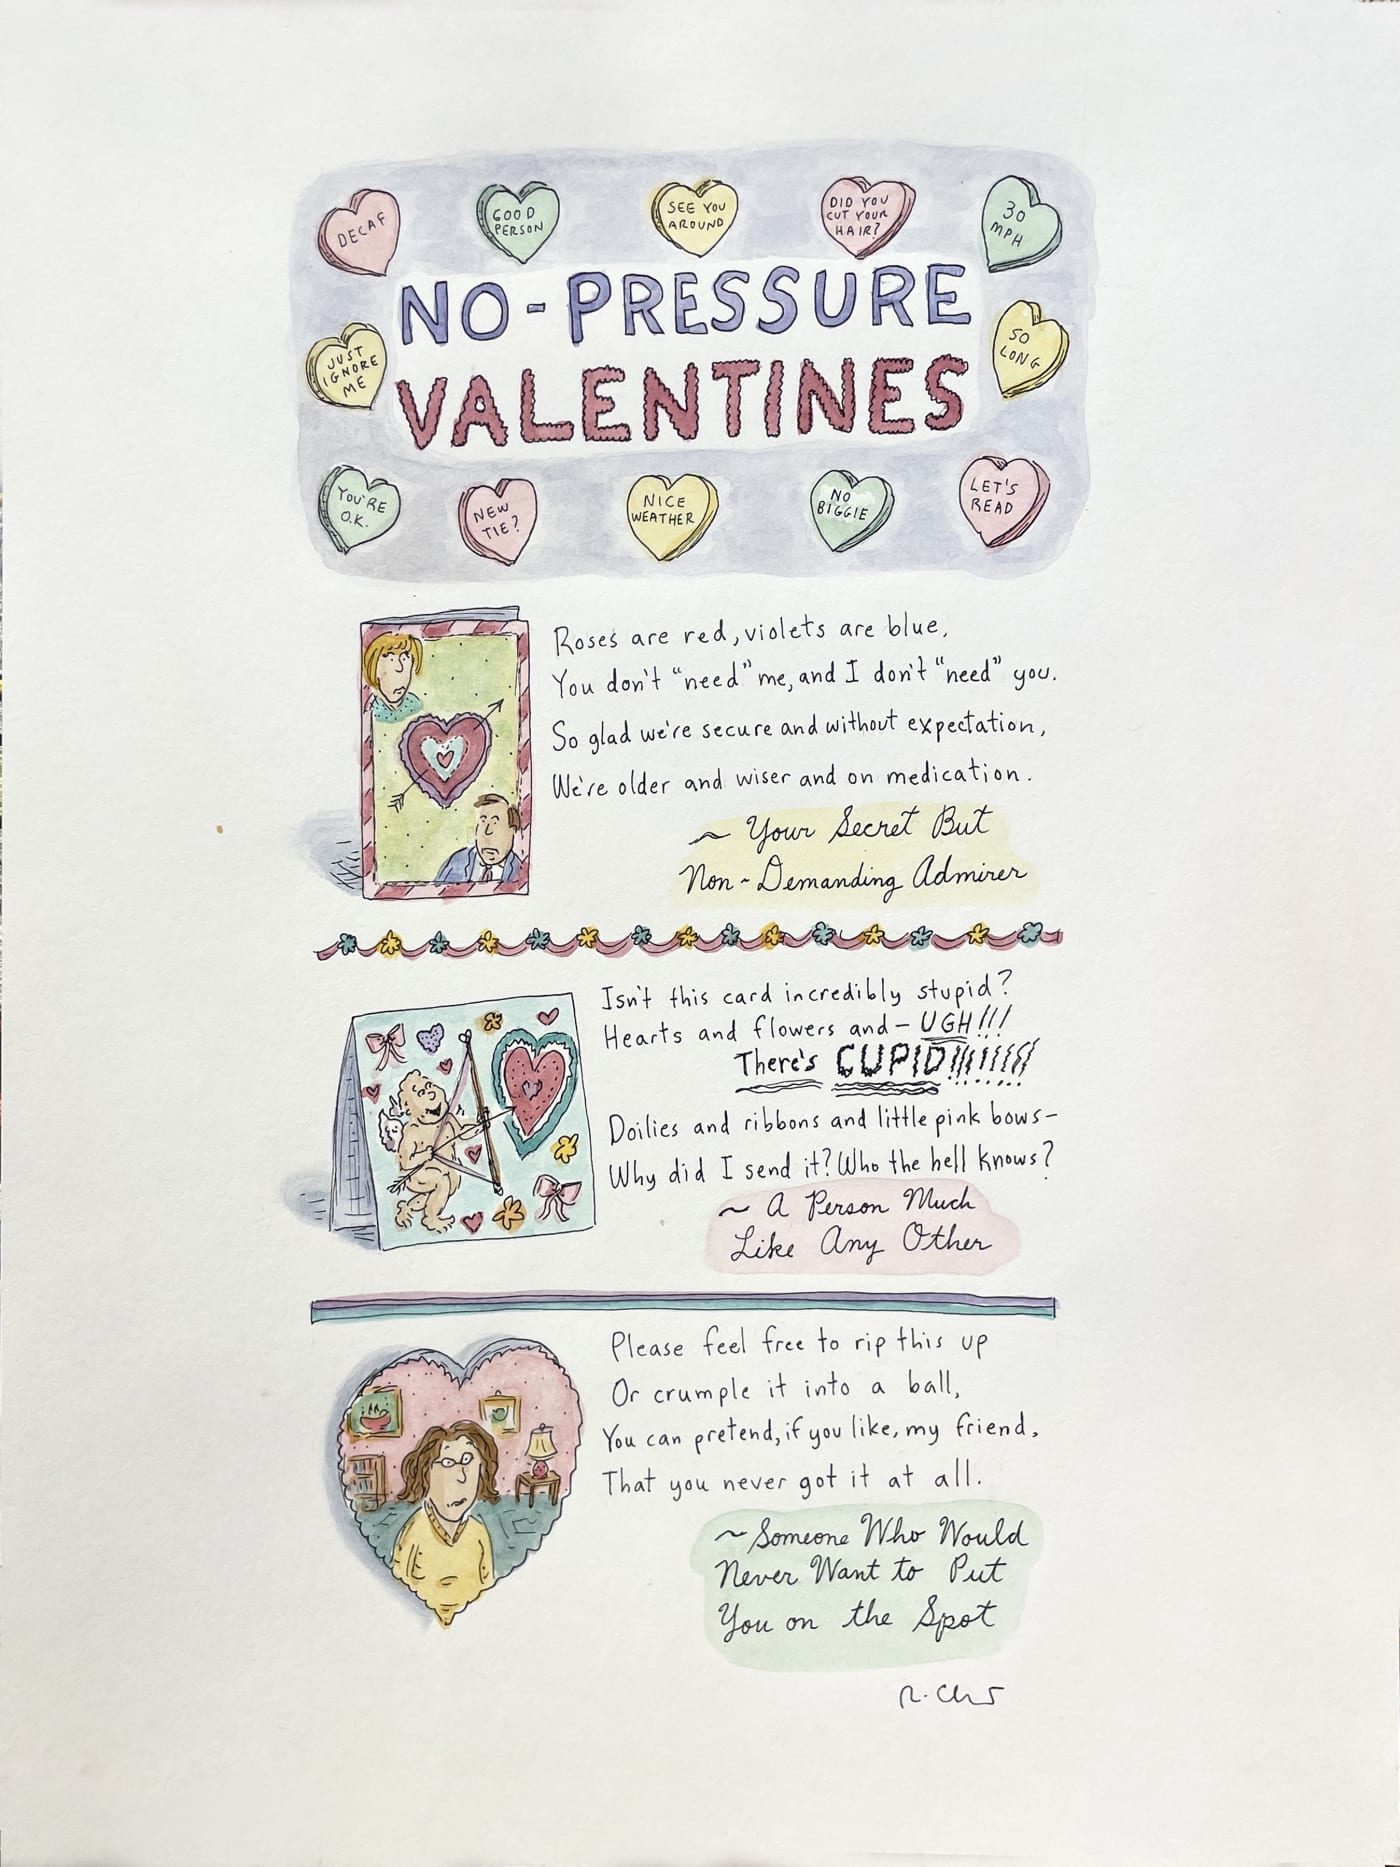 DECAF
GOOD
PERSON
SEE YOU
AROUND
DID YOU
CUT YOUR
HAIR?
30
MPH
NO-PRESSURE
VALENTINES
JUST
IGNORE
ME
SO
LONG
YOU'RE
O.K.
NEW
TIE?
NICE
WEATHER
NO
BIGGIE
LET'S
READ
Roses are red, violets are blue,
You don't "need" me, and I don't "need" you.
So glad we're secure and without expectation,
We're older and wiser and on medication.
~ Your Secret But
Non-Demanding Admirer
Isn't this card incredibly stupid?
Hearts and flowers and — UGH!!!
There's CUPID!!!!!!!!!
Doilies and ribbons and little pink bows—
Why did I send it? Who the hell knows?
~ A Person Much
Like Any Other
Please feel free to rip this up
Or crumple it into a ball,
You can pretend, if you like, my friend,
That you never got it at all.
~ Someone Who Would
Never Want to Put
You on the Spot
R. Chast